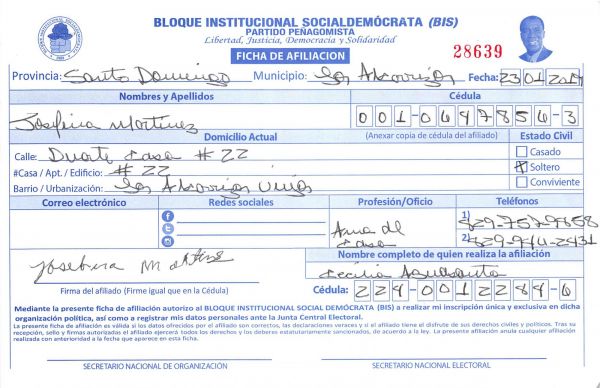 BLOQUE INSTITUCIONAL SOCIALDEMÓCRATA (BIS)
PARTIDO PEÑAGOMISTA
Libertad, Justicia, Democracia y Solidaridad
FICHA DE AFILIACION
28639
Provincia: Santo Domingo Municipio: Los Alcarrizos Fecha: 23 01 2019
Nombres y Apellidos Cédula
Josefina Martinez 001-0697856-3
Domicilio Actual (Anexar copia de cédula del afiliado) Estado Civil
Calle: Duarte casa # 22 Casado
#Casa / Apt. / Edificio: # 22 Soltero
Barrio / Urbanización: Los Alcarrizos Viejos Conviviente
Correo electrónico Redes sociales Profesión/Oficio Teléfonos
Ama de casa
1) 829-757-9858
2) 829-940-2431
Josefina Martinez
Nombre completo de quien realiza la afiliación
Cecilia
Firma del afiliado (Firme igual que en la Cédula) Cédula: 224-0012284-6
Mediante la presente ficha de afiliación autorizo al BLOQUE INSTITUCIONAL SOCIAL DEMÓCRATA (BIS) a realizar mi inscripción única y exclusiva en dicha
organización política, así como a registrar mis datos personales ante la Junta Central Electoral.
La presente ficha de afiliación es válida si los datos ofrecidos por el afiliado son correctos, las declaraciones veraces y si el afiliado tiene el disfrute de sus derechos civiles y políticos. Tras su
recepción, sello y firmas autorizadas el afiliado ejercerá todos los derechos y los deberes estatutariamente sancionados, de acuerdo a la ley. La presente afiliación anula cualquier afiliación
realizada con anterioridad a la fecha que aparece en esta ficha.
SECRETARIO NACIONAL DE ORGANIZACIÓN SECRETARIO NACIONAL ELECTORAL